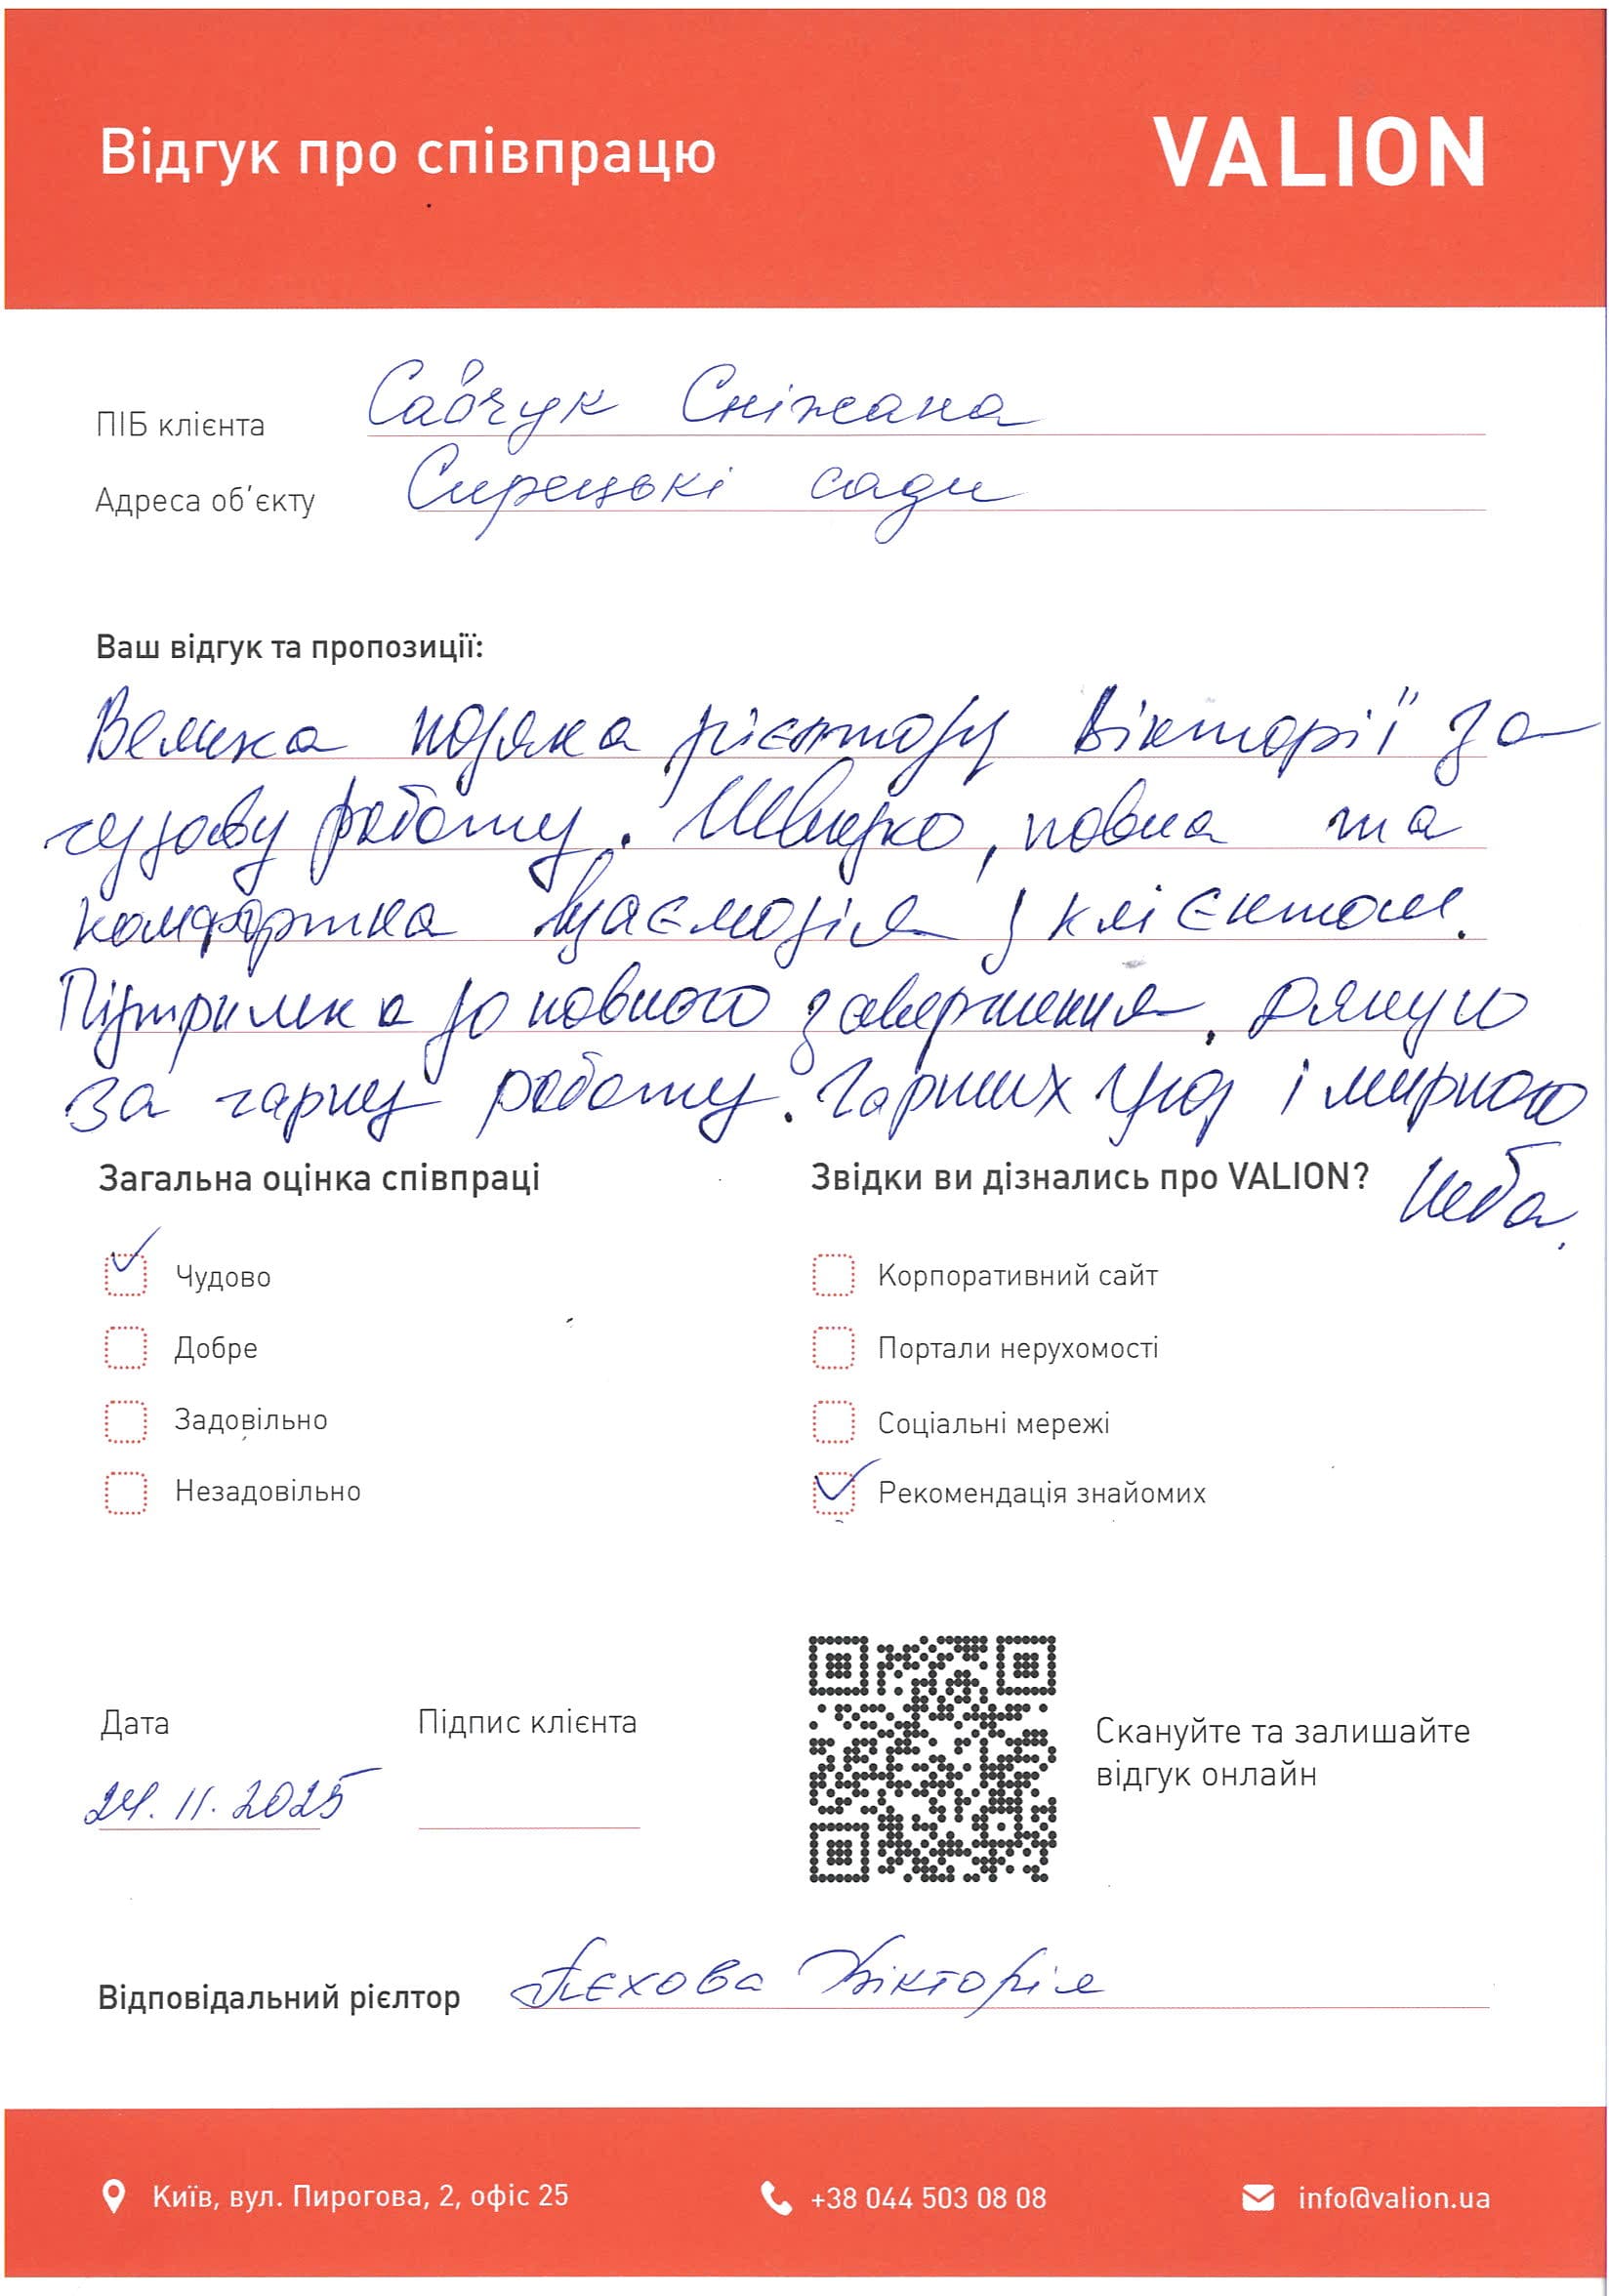 Відгук про співпрацю
VALION
ПІБ клієнта Савчук Сніжана
Адреса об'єкту Сирецькі сади
Ваш відгук та пропозиції:
Велика подяка рієлтору Вікторії за
чудову роботу. Швидко, повна та
комфортна взаємодія з клієнтом.
Підтримка до повного завершення. Дякую
за гарну роботу. Гарних угод і мирного
неба.
Загальна оцінка співпраці
Чудово
Добре
Задовільно
Незадовільно
Звідки ви дізнались про VALION?
Корпоративний сайт
Портали нерухомості
Соціальні мережі
Рекомендація знайомих
Дата
24.11.2025
Підпис клієнта
Скануйте та залишайте
відгук онлайн
Відповідальний рієлтор Вікторія
Київ, вул. Пирогова, 2, офіс 25
+38 044 503 08 08
info@valion.ua